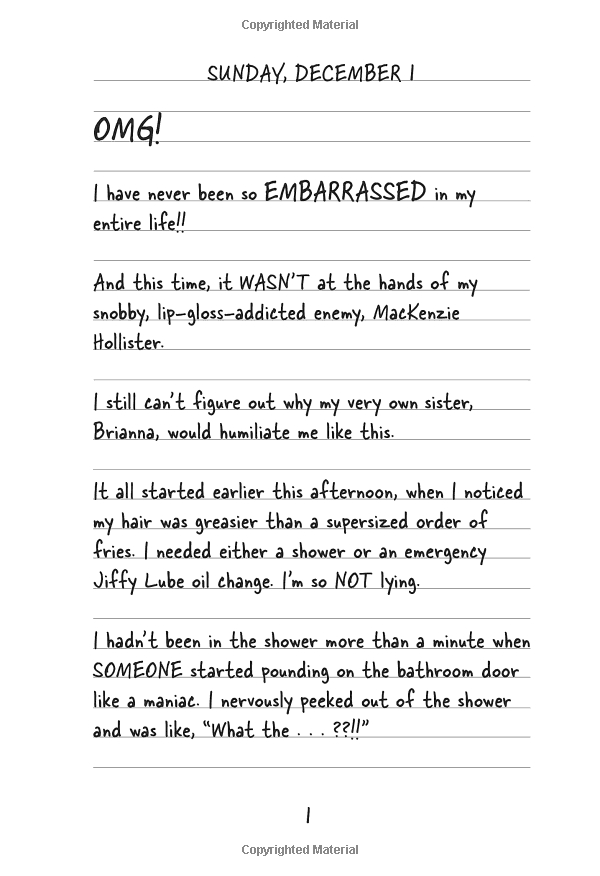 Copyrighted Material
SUNDAY, DECEMBER 1
OMG!
I have never been so EMBARRASSED in my
entire life!!
And this time, it WASN'T at the hands of my
snobby, lip-gloss-addicted enemy, MacKenzie
Hollister.
I still can't figure out why my very own sister,
Brianna, would humiliate me like this.
It all started earlier this afternoon, when I noticed
my hair was greasier than a supersized order of
fries. I needed either a shower or an emergency
Jiffy Lube oil change. I'm so NOT lying.
I hadn't been in the shower more than a minute when
SOMEONE started pounding on the bathroom door
like a maniac. I nervously peeked out of the shower
and was like, “What the . . . ??!!”
1
Copyrighted Material